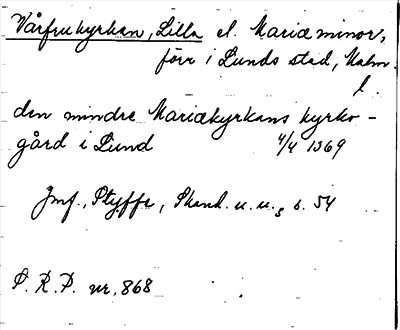 Vårfrukyrkan, Lilla el. Mariæ minor,
förr i Lunds stad, Malm.
l.
den mindre Mariækyrkans kyrko-
gård i Lund 4/4 1369
Jmf., Styffe, Skand. u. u., s. 54
S. R. P. nr. 868